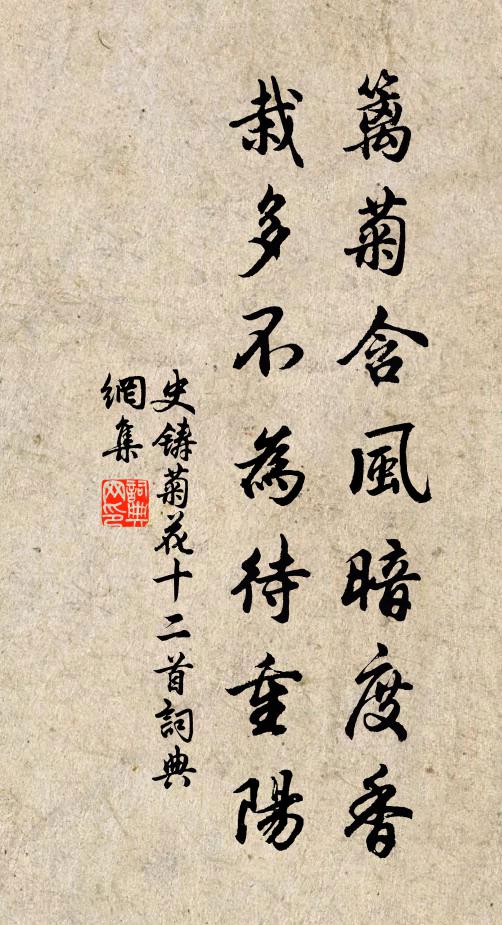 篱菊含風暗度香
栽多不為待重陽
史鑄菊花十二首詞典
網集
詞典
网印